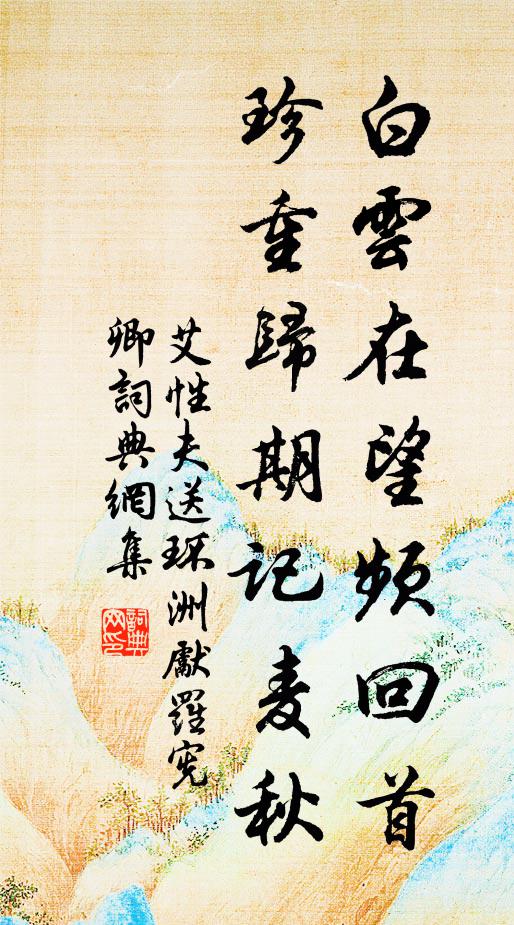 白雲在望頻回首
珍重歸期記麦秋
艾性夫送环洲獻羅宪
卿詞典網集
詞典
网印